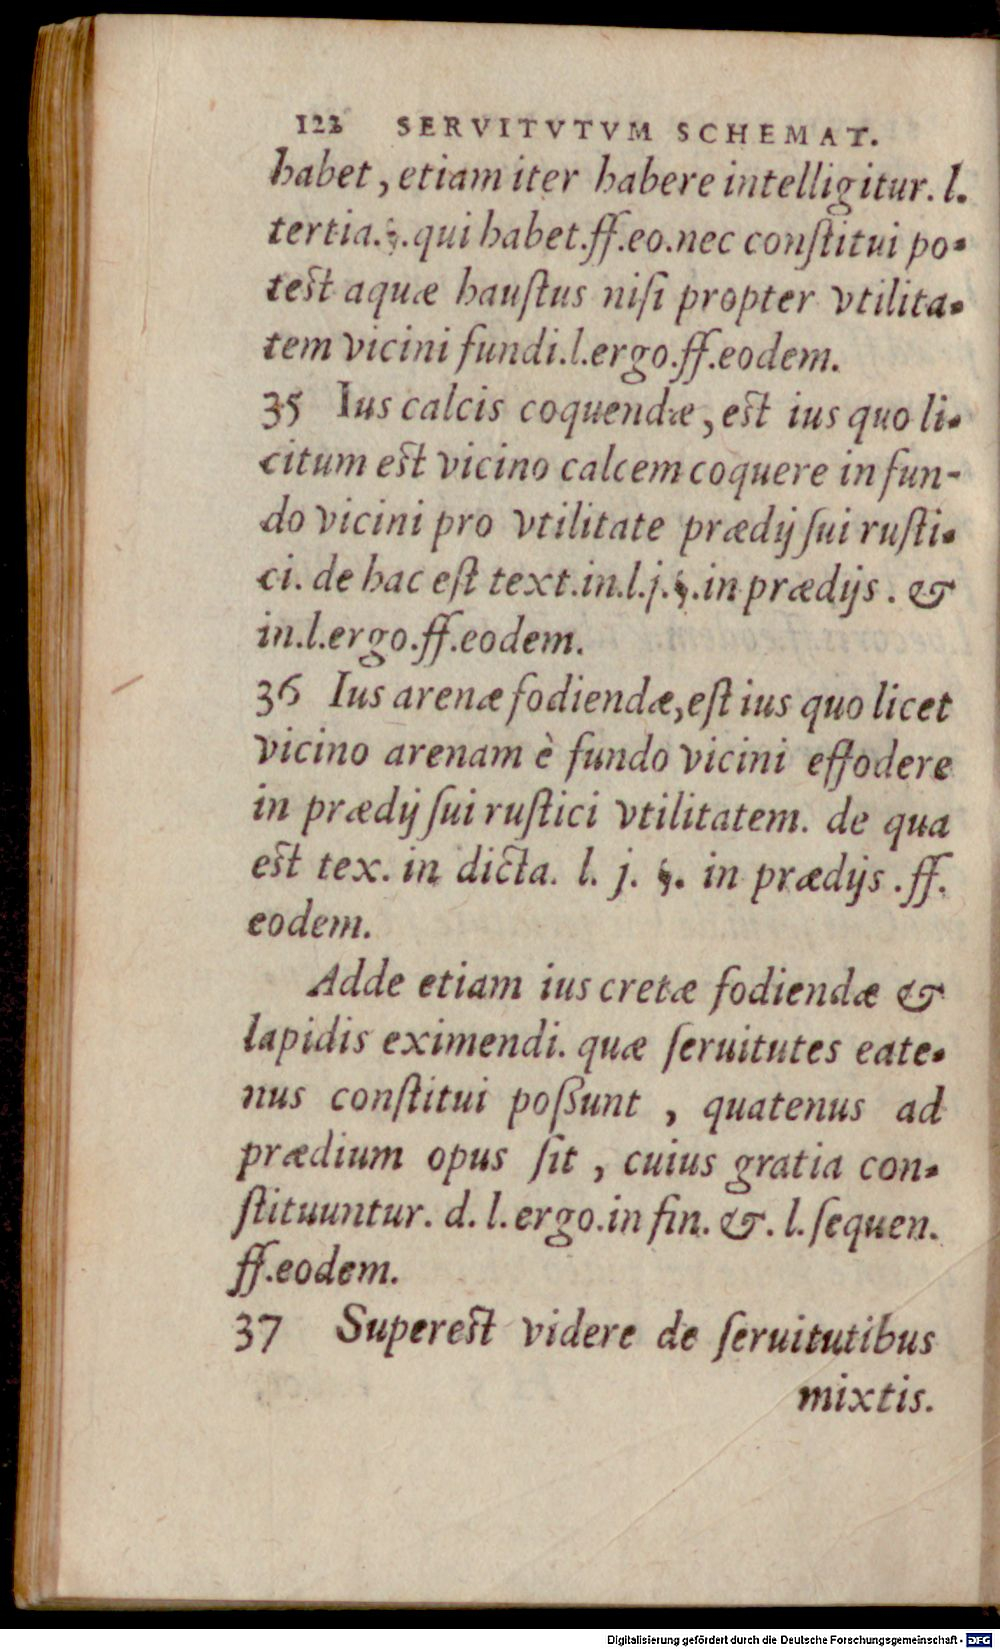 122 SERVITVTVM SCHEMAT.
habet, etiam iter habere intelligitur. l.
tertia.§.qui habet.ff.eo.nec conſtitui po-
test aquæ hauſtus niſi propter vtilita-
tem vicini fundi.l.ergo.ff.eodem.
35 Ius calcis coquendæ, est ius quo li-
citum est vicino calcem coquere in fun-
do vicini pro vtilitate prædij ſui ruſti-
ci. de hac eſt text.in.l.j.§.in prædijs. &
in.l.ergo.ff.eodem.
36 Ius arenæ fodiendæ, eſt ius quo licet
vicino arenam è fundo vicini effodere
in prædij ſui ruſtici vtilitatem. de qua
est tex. in dicta. l. j. §. in prædijs .ff.
eodem.
Adde etiam ius cretæ fodiendæ &
lapidis eximendi. quæ ſeruitutes eate-
nus conſtitui poſſunt , quatenus ad
prædium opus ſit , cuius gratia con-
ſtituuntur. d. l. ergo.in fin. &. l. ſequen.
ff.eodem.
37 Superest videre de ſeruitutibus
mixtis.
Digitalisierung gefördert durch die Deutsche Forschungsgemeinschaft - DFG